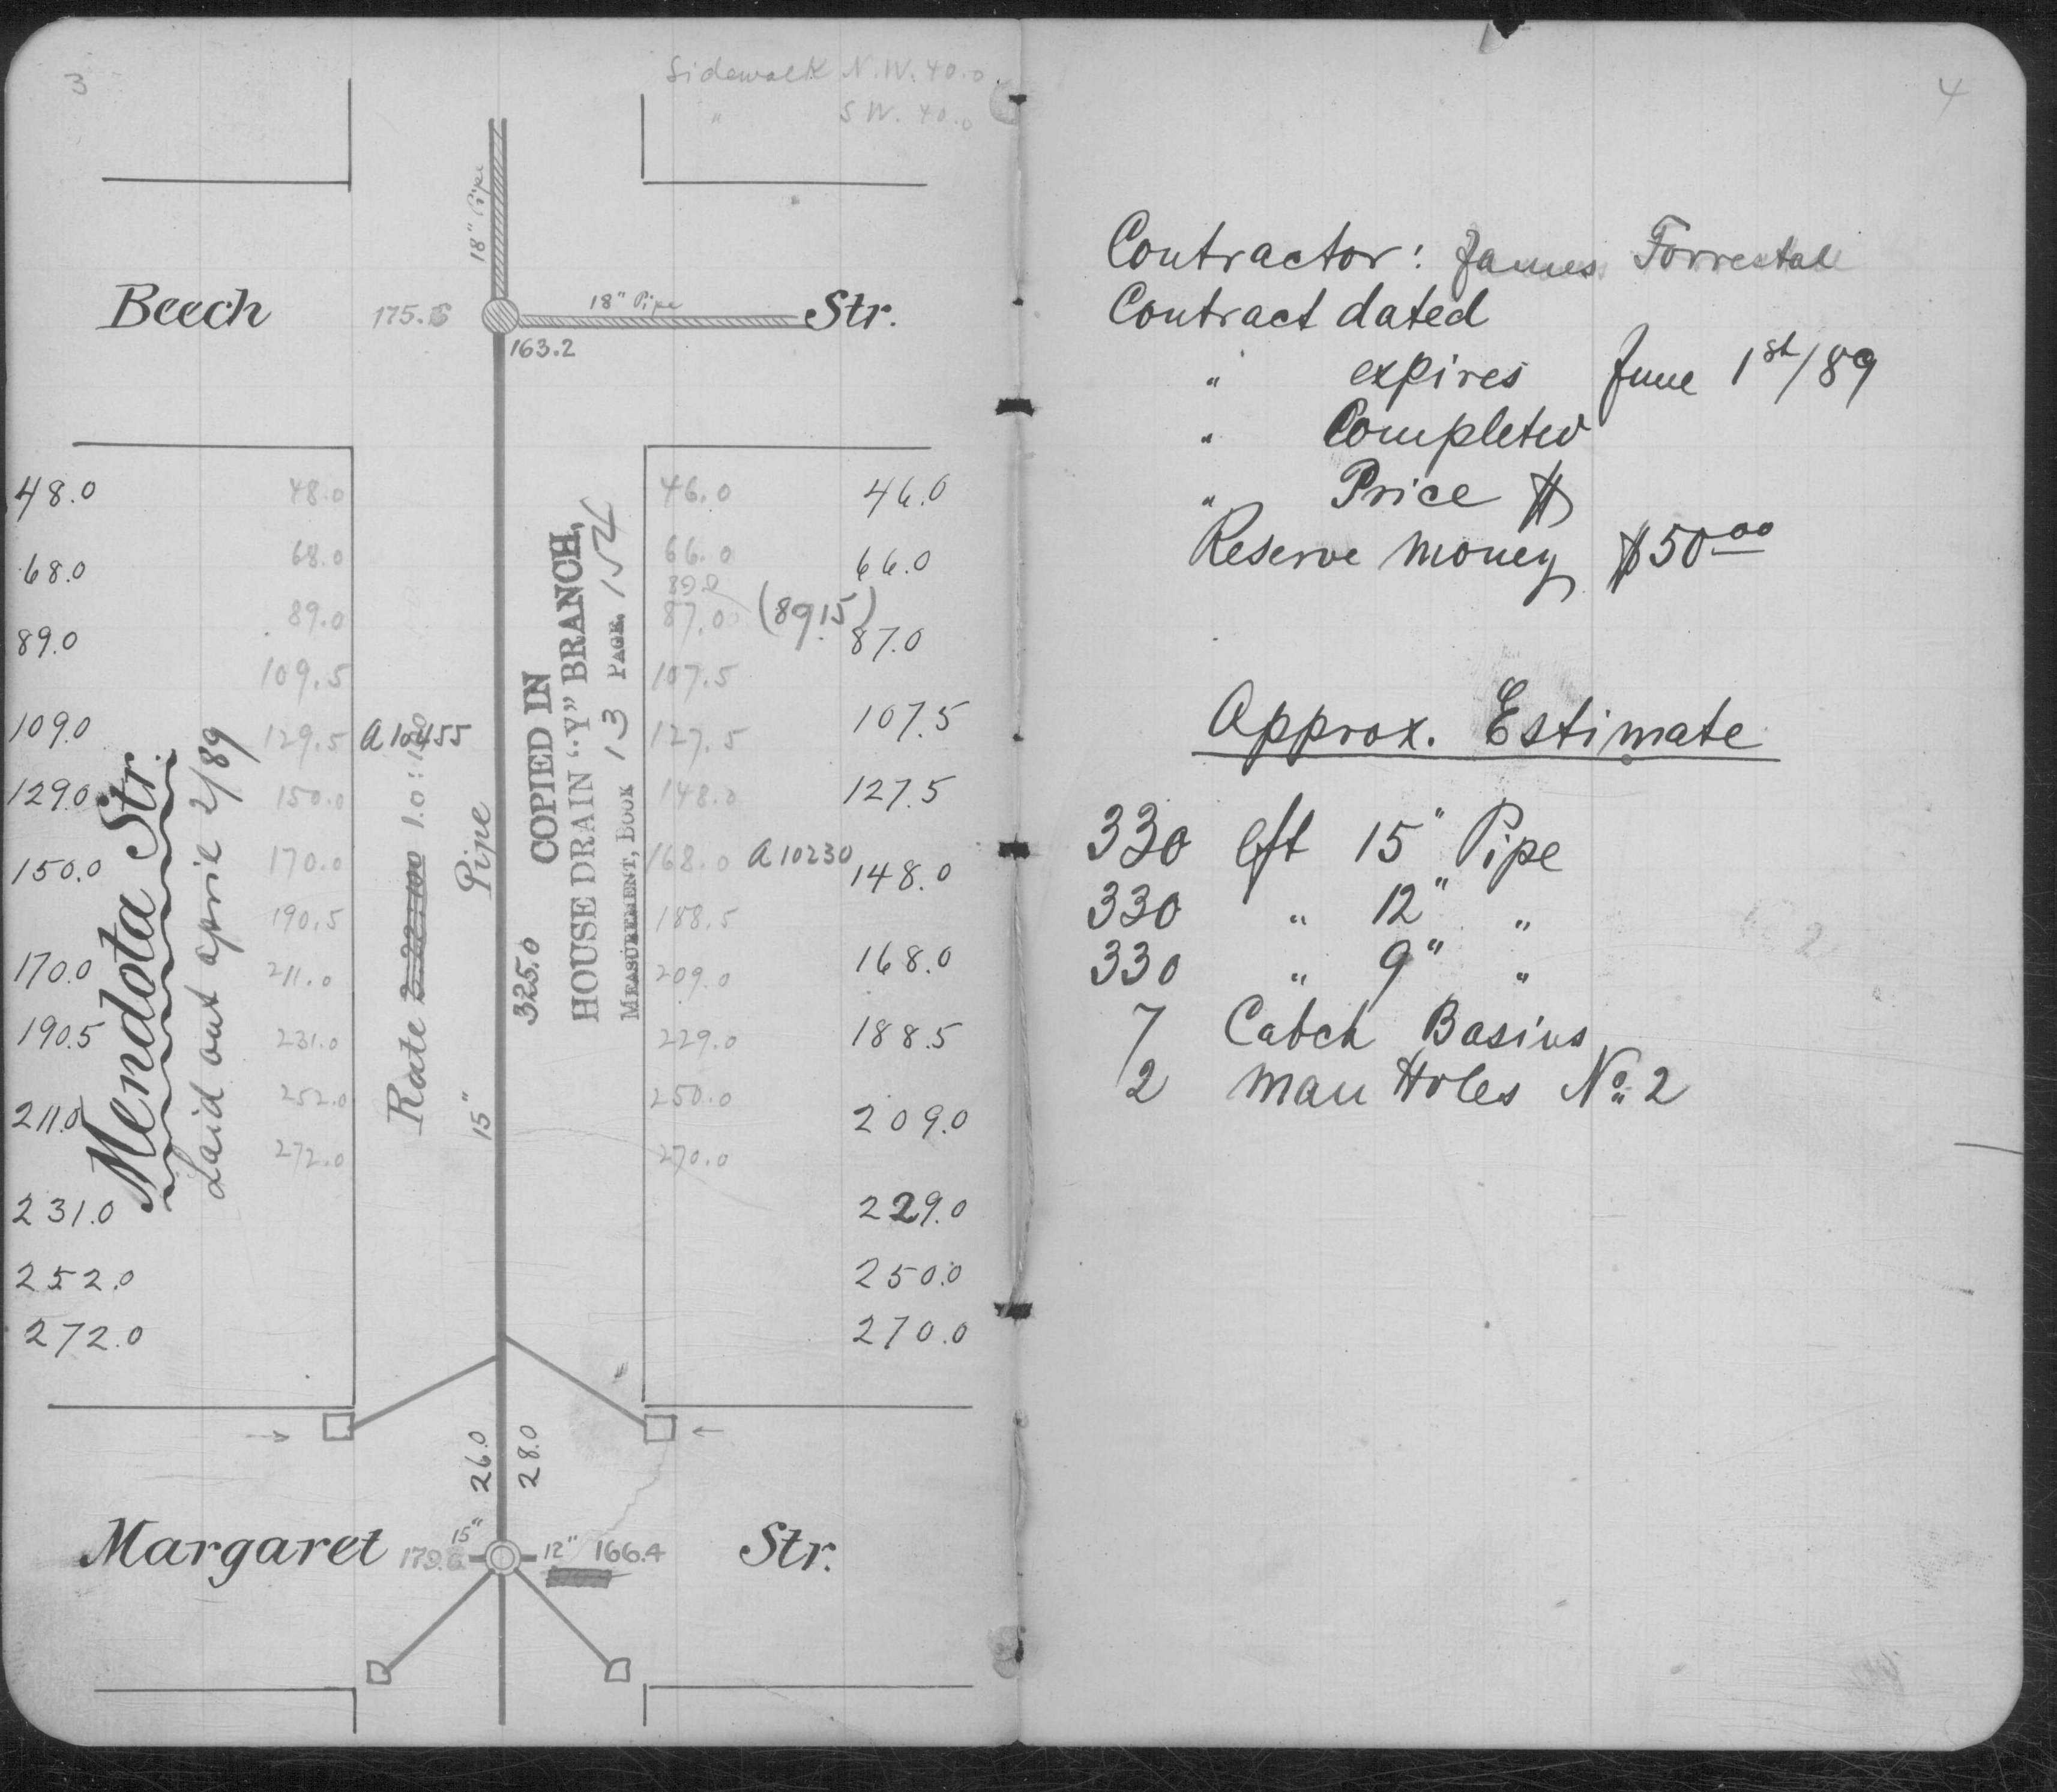 3
Sidewalk N.W. 40.0
" S W. 40.0
18" Pipe
Beech 175.
18" Pipe
Str.
163.2
48.0 48.0 46.0 46.0
68.0 68.0 66.0 66.0
89.0
89.0 89.0 87.0 (89 15) 87.0
109.0 109.5 107.5 107.5
129.0 129.5 A 10455 127.5 127.5
150.0 150.0 148.0 148.0
170.0 170.0 168.0 A 10230 168.0
190.5 190.5 188.5 188.5
211.0 211.0 209.0 209.0
231.0 231.0 229.0 229.0
252.0 252.0 250.0 250.0
272.0 272.0 270.0 270.0
Mendota Str.
Laid out april 2/89
Rate 1.0:
15" Pipe
325.0
COPIED IN
HOUSE DRAIN "Y" BRANCH,
MEASUREMENT, BOOK 13 PAGE, 154
26.0
28.0
Margaret 15" 12" 166.4 Str.
4
Contractor: James Forrestal
Contract dated
" expires June 1st/89
" Completed
" Price $
Reserve money $50 00
Approx. Estimate
330 lft 15" Pipe
330 " 12" "
330 " 9" "
7 Catch Basins
2 Man Holes No. 2